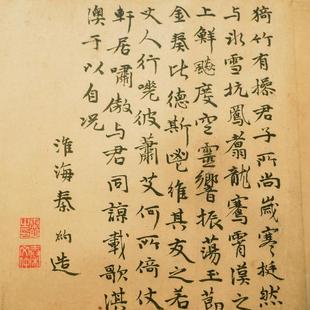 猗竹有操君子所尚歲寒挺然
与冰雪抗鳳翥龍騫霄漢之
上鮮飈度空靈響振蕩玉節
金奏比德斯鬯維其友之若
丈人行嗟彼蕭艾何所倚仗
軒居嘯傲与君同諒載歌淇
澳于以自况
淮海秦造